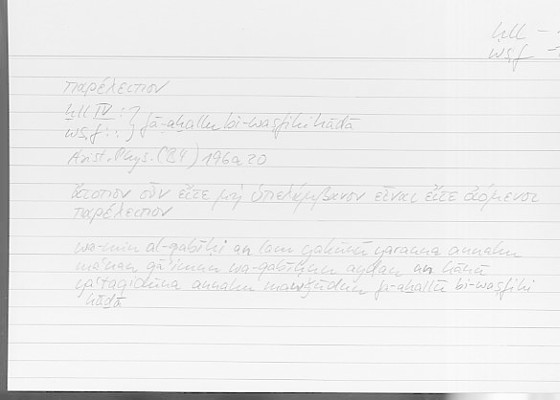 ḫll –
wṣf –
παρέλειπον
ḫll IV : }
wṣf : : } fa-aḫallū bi-waṣfihi hāḏā
Arist. Phys. (B4) 196a20
ἄτοπον οὖν εἴτε μὴ ὑπελάμβανον εἶναι εἴτε οἰόμενοι
παρέλειπον
wa-min al-qabīḥi an lam yakūnū yarauna annahu
maʿnan qāʾimun wa-qabīḥun ayḍan in kānū
yaʿtaqidūna annahu mawǧūdun fa-aḫallū bi-waṣfihi
hāḏā